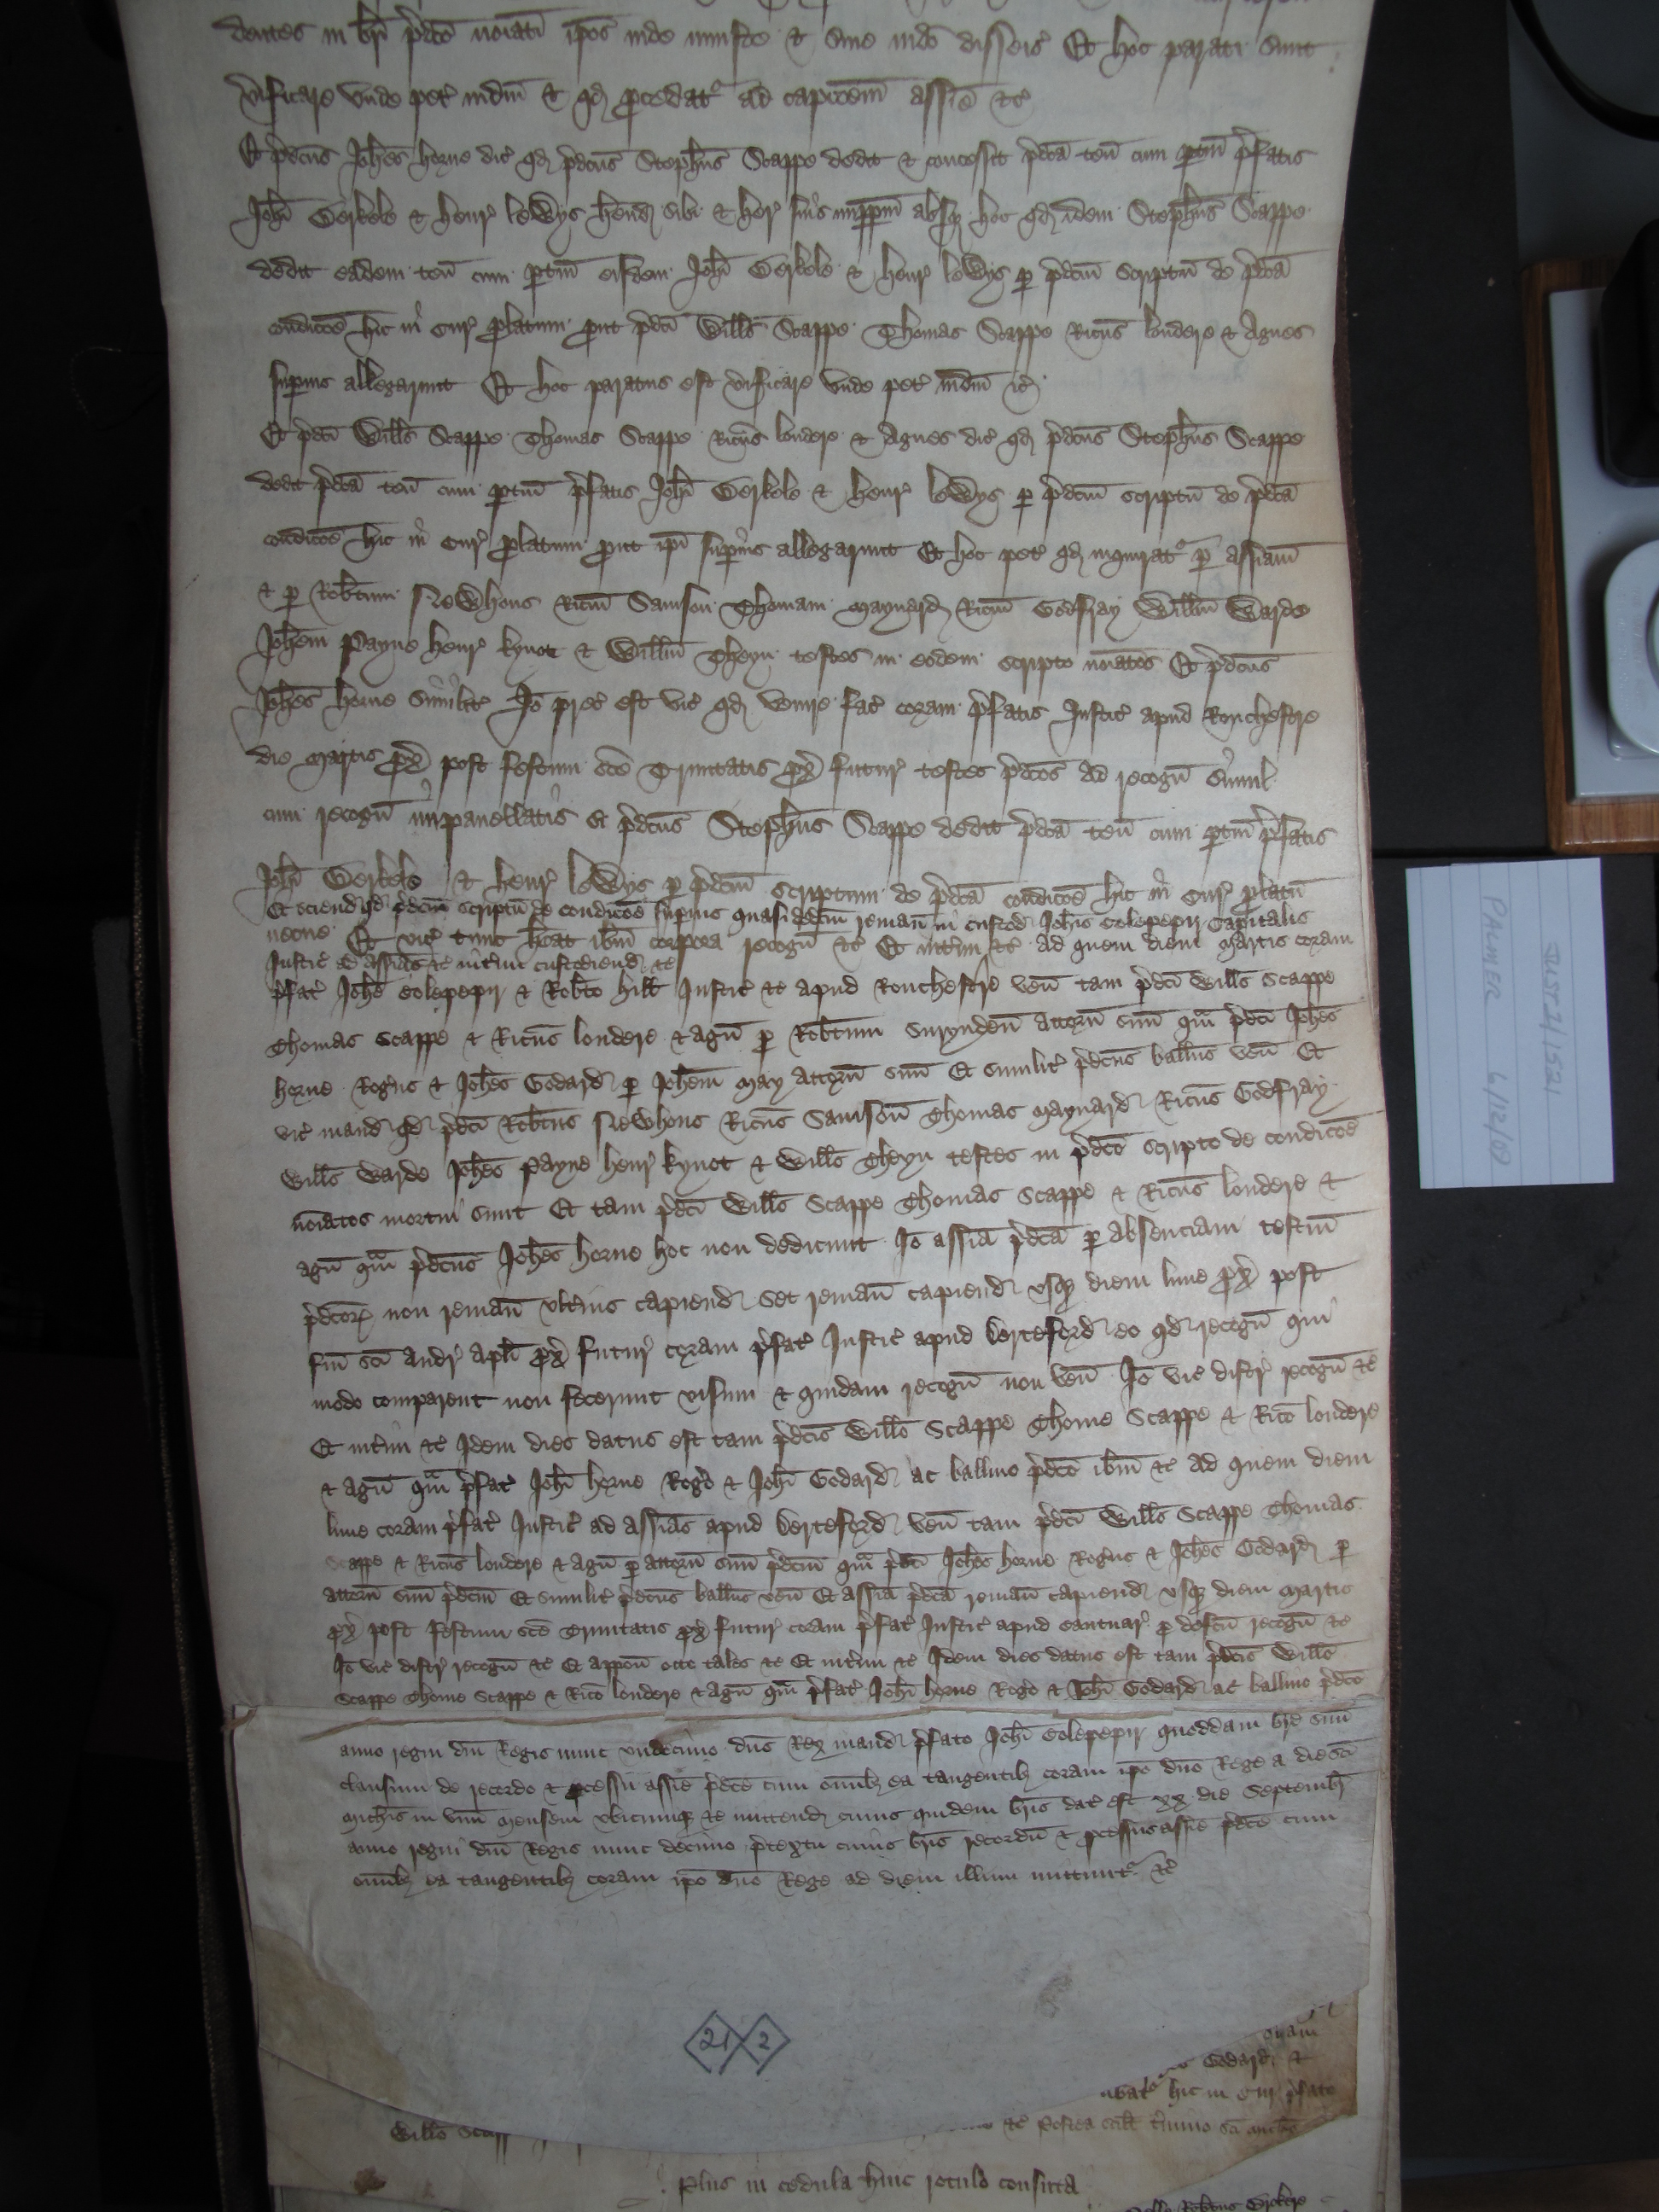 dantes in bri p̄dc̄o noiati ipos inde iniuste & sine iudo disseis' Et hoc parati sunt
v'ificare vnde pet' iudm̄ & qd procedat' ad capc̄oem assie &c'
Et p̄dcus Joh̄es horne dic' qd p̄dcus Steph̄us Scappe dedit & concessit p̄dc̄a ten̄ cum ptin̄ p̄fatis
Joh̄i Gerkele & henr' lewys h̄end sibi & her' suis imppm̄ absq hoc qd idem Steph̄us Scappe
dedit eadem ten̄ cum ptin̄ eisdem Joh̄i Gerkele & henr' lewys p p̄dcm̄ scriptū de p̄dc̄a
condicōe hic in Cur' platum put p̄dc̄i Wills Scappe Thomas Scappe Ricus londere & Agnes
supius allegarunt Et hoc paratus est v'ificare vnde pet' iudm̄ &c'
Et p̄dc̄i Wills Scappe Thomas Scappe Ricus londere & Agnes dic' qd p̄dcus Steph̄us Scappe
dedit p̄dc̄a ten̄ cum ptin̄ p̄fatis Joh̄i Gerkele & henr' lewys p p̄dcm̄ scriptū de p̄dc̄a
condicōe hic in Cur' platum put ip̄i supius allegarunt Et hoc pet' qd inquirat' p assiam
& p Rob̄tum Newhous Ricm̄ Samson Thomam Maynard Ricm̄ Godfray Willm̄ Warde
Joh̄em Payne henr' kynot & Willm̄ Theyn testes in eodem scripto noiatos Et p̄dcus
Joh̄es horne similit' Jo prec' est vic' qd venire fac' coram p̄fatis Justic' apud Rouchestre
die Martis px' post festum sc̄e Trinitatis px' futur' testes p̄dcos ad recogn̄ simul
cum recogn̄ impanellatis si p̄dcus Steph̄us Scappe dedit p̄dc̄a ten̄ cum ptin̄ p̄fatis
Joh̄i Gerkele & henr' lewys p p̄dcm̄ scriptum de p̄dc̄a condicōe hic in Cur' platū
Et sciend qd p̄dcm̄ scriptū de condicōe supius quasi dedcm̄ reman̄ in custod Joh̄is Colepepir Capitalis
necne Et vic' tunc h̄eat ib̄m corpora recogn̄ &c' Et int'im &c' Ad quem diem Martis coram
Justic' ad assias &c' int'im custodiend &c'
p̄fat' Joh̄e Colepepir & Rob̄to hill Justic' &c' apud Rouchestre ven̄ tam p̄dc̄i Wills Scappe
Thomas Scappe & Ricus londere & Agn̄ p Rob̄tum Suryndeñ attorn̄ suū q̄m p̄dc̄i Joh̄es
horne Rog'us & Joh̄es Godard p Joh̄em May attorn̄ suū Et similit' p̄dcus ballius ven̄ Et
vic' mand qd p̄dc̄i Rob̄tus Newhous Ricus Samson Thomas Maynard Ricus Godfray
Wills Warde Joh̄es Payne henr' kynot & Wills Theyn testes in p̄dc̄o scripto de condicōe
noiatos mortui sunt Et tam p̄dc̄i Wills Scappe Thomas Scappe & Ricus londere &
Agn̄ q̄m p̄dcus Joh̄es horne hoc non dedicunt Jo assia p̄dc̄a p absenciam testiū
p̄dcor' non reman̄ vlt'ius capiend Set reman̄ capiend vsq diem lune px' post
fm̄ sc̄i Andr' apli px' futur' coram p̄fat' Justic' apud Derteford eo qd recogn̄ qui
modo comparent non fecerunt visum & quidam recogn̄ non ven̄ Jo vic' distr' recogn̄ &c'
Et int'im &c' Idem dies datus est tam p̄dc̄is Willo Scappe Thome Scappe & Rico londere
& Agn̄ q̄m p̄fat' Joh̄i horne Rog'o & Joh̄i Godard ac ballivo p̄dc̄o ib̄m &c' Ad quem diem
lune coram p̄fat' Justic' ad assias apud Derteford ven̄ tam p̄dc̄i Wills Scappe Thomas
Scappe & Ricus londere & Agn̄ p attorn̄ suū p̄dcm̄ q̄m p̄dc̄i Joh̄es horne Rog'us & Joh̄es Godard p
attorn̄ suū p̄dcm̄ Et similit' p̄dcus ballius ven̄ Et assia p̄dc̄a reman̄ capiend vsq diem Martis
px' post festum sc̄e Trinitatis px' futur' coram p̄fat' Justic' apud Cantuar' p defcū recogn̄ &c'
Jo vic' distr' recogn̄ &c' Et appon̄ octo tales &c' Et int'im &c' Idem dies datus est tam p̄dc̄is Willo
Scappe Thome Scappe & Rico londere & Agn̄ q̄m p̄fat' Joh̄i horne Rog'o & Joh̄i Godard ac ballivo p̄dc̄o
anno regni dn̄i Regis nunc vndecimo dn̄s Rex mand p̄fato Joh̄i Colepepir quoddam br̄e suū
clausum de recordo & pcessu assie p̄dc̄e cum omib3 ea tangentib3 coram ip̄o dn̄o Rege a die sc̄i
Mich̄is in vnū mensem vbicumq &c' mittend cuius quidem br̄is dat' est xx die Septembr̄
anno regni dn̄i Regis nunc decimo p̄textu cuius br̄is recordū & pcessus assie p̄dc̄e cum
omib3 ea tangentib3 coram ip̄o dn̄o Rege ad diem illum mittunt' &c'
21 2
Godard &
hic in Cur' p̄fato
Willo Scapp &c' Postea scilt t'mino sc̄i Mich̄is
Plus in cedula huic rotulo consuta
JUST 2/1521
PALMER 6/12/09